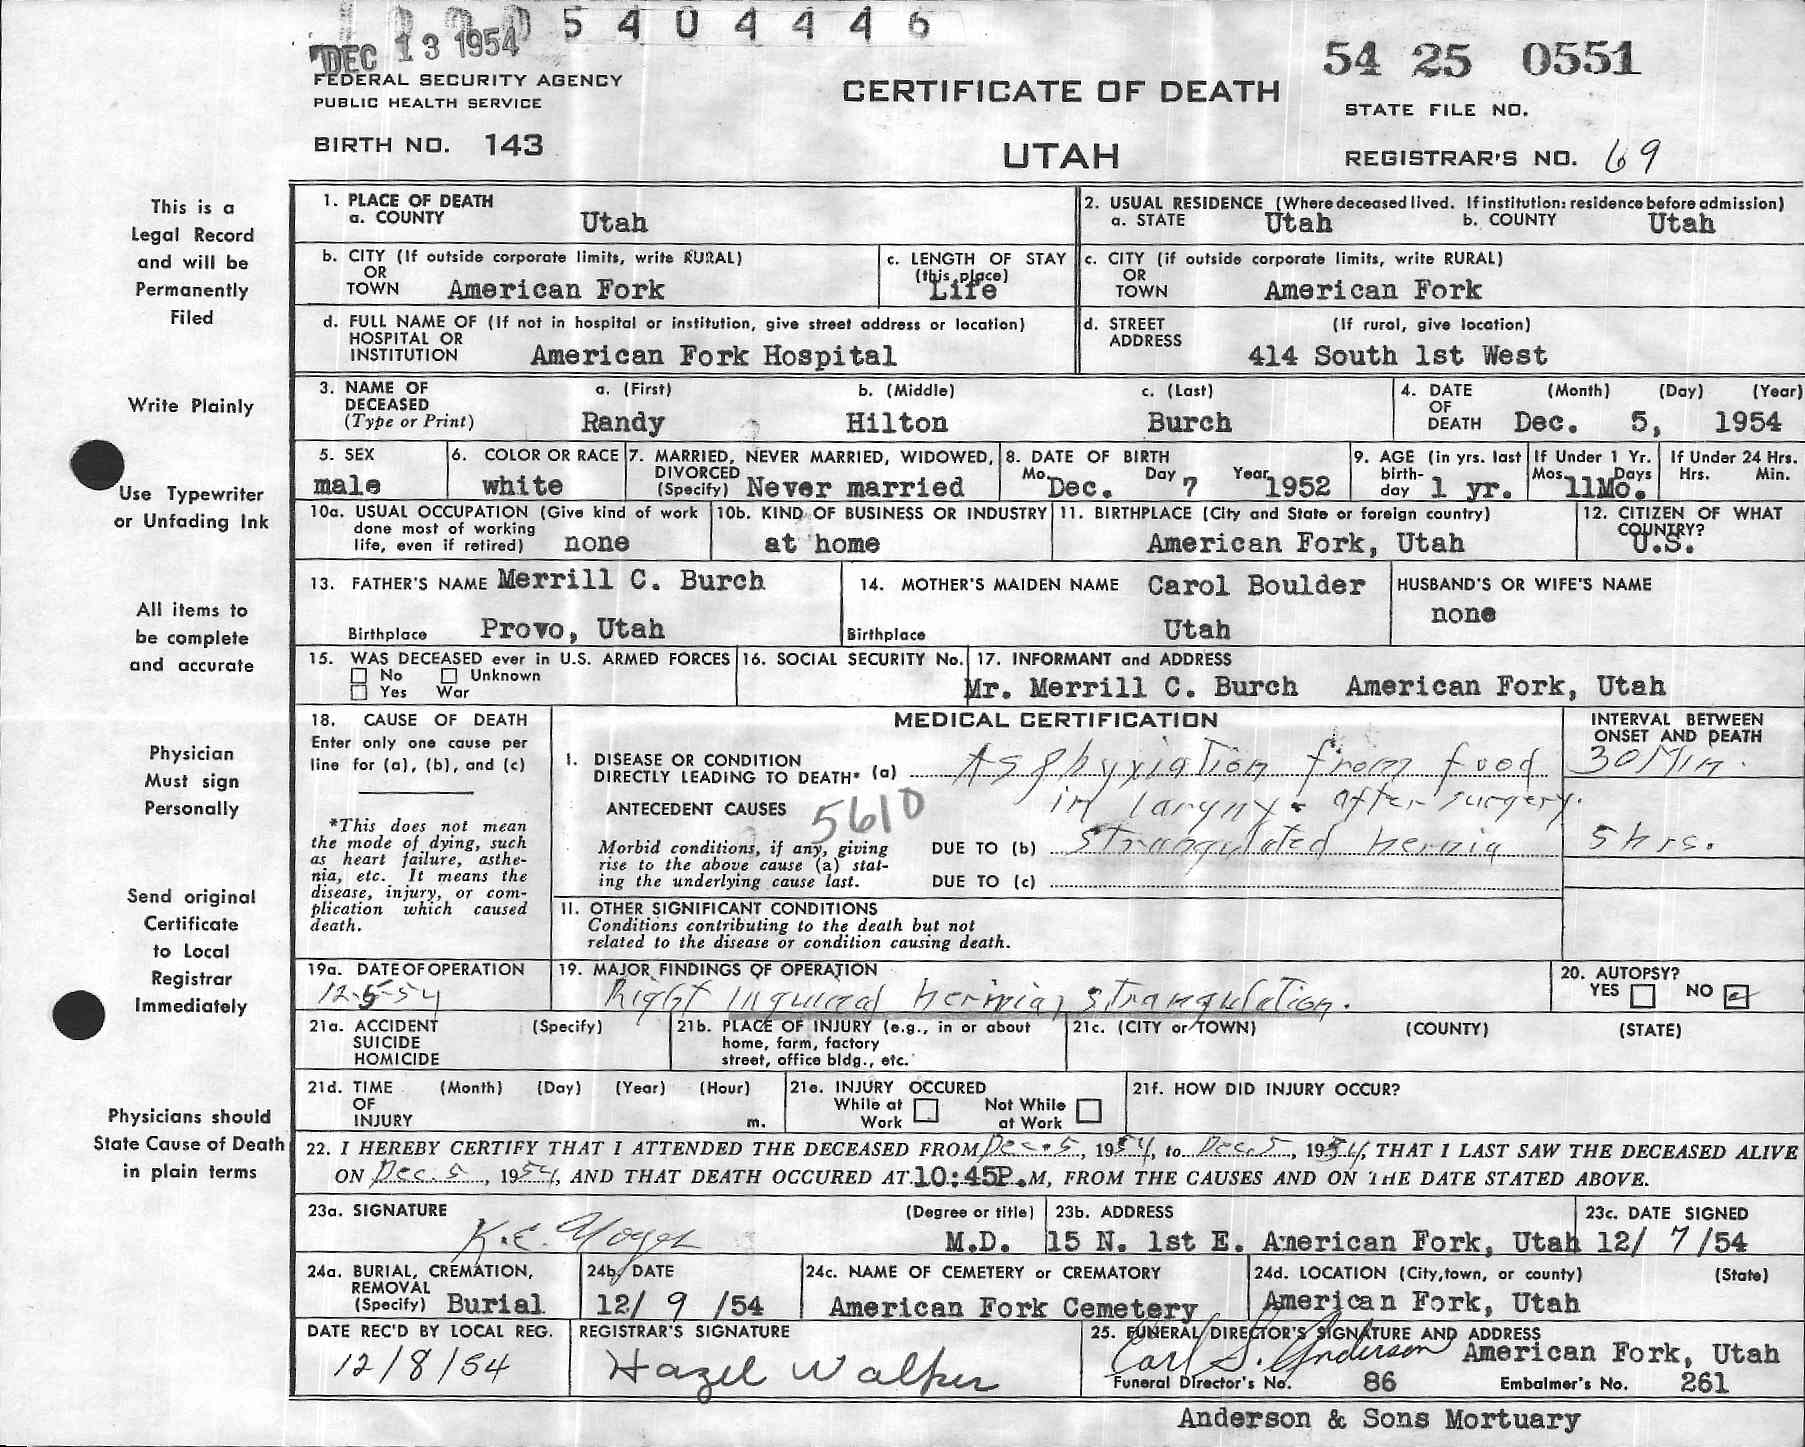 DEC 13 1954 5 4 0 4 4 4 6
54 25 0551
FEDERAL SECURITY AGENCY
PUBLIC HEALTH SERVICE
CERTIFICATE OF DEATH
STATE FILE NO.
BIRTH NO. 143
UTAH
REGISTRAR'S NO. 69
This is a
Legal Record
and will be
Permanently
Filed
Write Plainly
Use Typewriter
or Unfading Ink
All items to
be complete
and accurate
Physician
Must sign
Personally
Send original
Certificate
to Local
Registrar
Immediately
Physicians should
State Cause of Death
in plain terms
1. PLACE OF DEATH
a. COUNTY Utah
2. USUAL RESIDENCE (Where deceased lived. If institution: residence before admission)
a. STATE Utah b. COUNTY Utah
b. CITY (If outside corporate limits, write RURAL)
OR
TOWN American Fork
c. LENGTH OF STAY
(this place)
Life
c. CITY (if outside corporate limits, write RURAL)
OR
TOWN American Fork
d. FULL NAME OF (If not in hospital or institution, give street address or location)
HOSPITAL OR
INSTITUTION American Fork Hospital
d. STREET (If rural, give location)
ADDRESS
414 South 1st West
3. NAME OF a. (First) b. (Middle) c. (Last)
DECEASED
(Type or Print) Randy Hilton Burch
4. DATE (Month) (Day) (Year)
OF
DEATH Dec. 5, 1954
5. SEX
male
6. COLOR OR RACE
white
7. MARRIED, NEVER MARRIED, WIDOWED,
DIVORCED
(Specify) Never married
8. DATE OF BIRTH
Mo. Dec. Day 7 Year 1952
9. AGE (in yrs. last
birth-
day 1 yr.
If Under 1 Yr.
Mos. Days
11Mo.
If Under 24 Hrs.
Hrs. Min.
10a. USUAL OCCUPATION (Give kind of work
done most of working
life, even if retired) none
10b. KIND OF BUSINESS OR INDUSTRY
at home
11. BIRTHPLACE (City and State or foreign country)
American Fork, Utah
12. CITIZEN OF WHAT
COUNTRY?
U.S.
13. FATHER'S NAME Merrill C. Burch
Birthplace Provo, Utah
14. MOTHER'S MAIDEN NAME Carol Boulder
Birthplace Utah
HUSBAND'S OR WIFE'S NAME
none
15. WAS DECEASED ever in U.S. ARMED FORCES
No Unknown
Yes War
16. SOCIAL SECURITY No.
17. INFORMANT and ADDRESS
Mr. Merrill C. Burch American Fork, Utah
18. CAUSE OF DEATH
Enter only one cause per
line for (a), (b), and (c)
*This does not mean
the mode of dying, such
as heart failure, asthe-
nia, etc. It means the
disease, injury, or com-
plication which caused
death.
MEDICAL CERTIFICATION
INTERVAL BETWEEN
ONSET AND DEATH
1. DISEASE OR CONDITION
DIRECTLY LEADING TO DEATH* (a) Asphyxiation from food 30 Min.
in larynx - after surgery.
ANTECEDENT CAUSES 5610
Morbid conditions, if any, giving
rise to the above cause (a) stat-
ing the underlying cause last.
DUE TO (b) Strangulated hernia 5 hrs.
DUE TO (c)
11. OTHER SIGNIFICANT CONDITIONS
Conditions contributing to the death but not
related to the disease or condition causing death.
19a. DATE OF OPERATION
12-5-54
19. MAJOR FINDINGS OF OPERATION
Right inguinal hernia, strangulation.
20. AUTOPSY?
YES NO
21a. ACCIDENT (Specify)
SUICIDE
HOMICIDE
21b. PLACE OF INJURY (e.g., in or about
home, farm, factory
street, office bldg., etc.
21c. (CITY or TOWN) (COUNTY) (STATE)
21d. TIME (Month) (Day) (Year) (Hour)
OF
INJURY m.
21e. INJURY OCCURED
While at Not While
Work at Work
21f. HOW DID INJURY OCCUR?
22. I HEREBY CERTIFY THAT I ATTENDED THE DECEASED FROM Dec. 5, 1954, to Dec. 5, 1954, THAT I LAST SAW THE DECEASED ALIVE
ON Dec. 5, 1954, AND THAT DEATH OCCURED AT 10:45P.M, FROM THE CAUSES AND ON THE DATE STATED ABOVE.
23a. SIGNATURE (Degree or title)
K.E. M.D.
23b. ADDRESS
15 N. 1st E. American Fork, Utah
23c. DATE SIGNED
12/ 7 /54
24a. BURIAL, CREMATION,
REMOVAL
(Specify) Burial
24b. DATE
12/ 9 /54
24c. NAME OF CEMETERY or CREMATORY
American Fork Cemetery
24d. LOCATION (City, town, or county) (State)
American Fork, Utah
DATE REC'D BY LOCAL REG.
12/8/54
REGISTRAR'S SIGNATURE
Hazel Walker
25. FUNERAL DIRECTOR'S SIGNATURE AND ADDRESS
Earl S. Anderson American Fork, Utah
Funeral Director's No. 86 Embalmer's No. 261
Anderson & Sons Mortuary